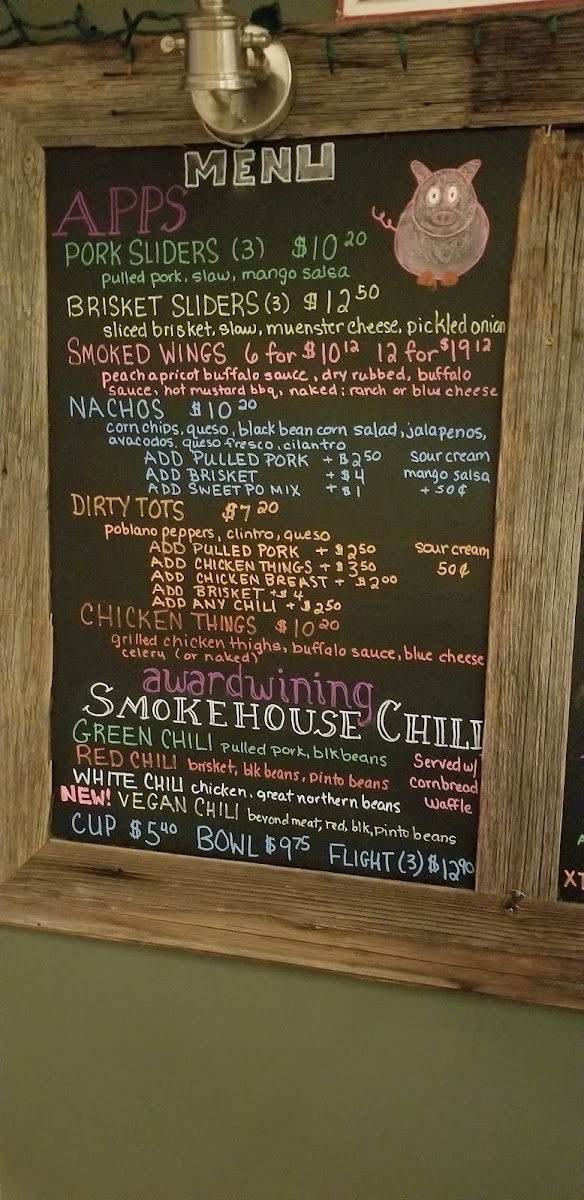 MENU
APPS
PORK SLIDERS (3) $10 20
pulled pork, slaw, mango salsa
BRISKET SLIDERS (3) $12 50
sliced brisket, slaw, muenster cheese, pickled onion
SMOKED WINGS 6 for $10 12 12 for $19 12
peach apricot buffalo sauce, dry rubbed, buffalo
sauce, hot mustard bbq, naked; ranch or blue cheese
NACHOS $10 20
corn chips, queso, black bean corn salad, jalapenos,
avacodos, queso fresco, cilantro
ADD PULLED PORK +$2 50 sour cream
ADD BRISKET +$4 mango salsa
ADD SWEET PO MIX +$1 +50¢
DIRTY TOTS $7 20
poblano peppers, clintro, queso
ADD PULLED PORK +$2 50 sour cream
ADD CHICKEN THINGS +$3 50 50¢
ADD CHICKEN BREAST +$2 00
ADD BRISKET +$4
ADD ANY CHILI +$2 50
CHICKEN THINGS $10 20
grilled chicken thighs, buffalo sauce, blue cheese
celery (or naked)
awardwining
SMOKEHOUSE CHILI
GREEN CHILI pulled pork, blk beans Served w/
RED CHILI brisket, blk beans, pinto beans cornbread
WHITE CHILI chicken, great northern beans waffle
NEW! VEGAN CHILI beyond meat, red, blk, pinto beans
CUP $5 40 BOWL $9 75 FLIGHT (3) $12 90
XT